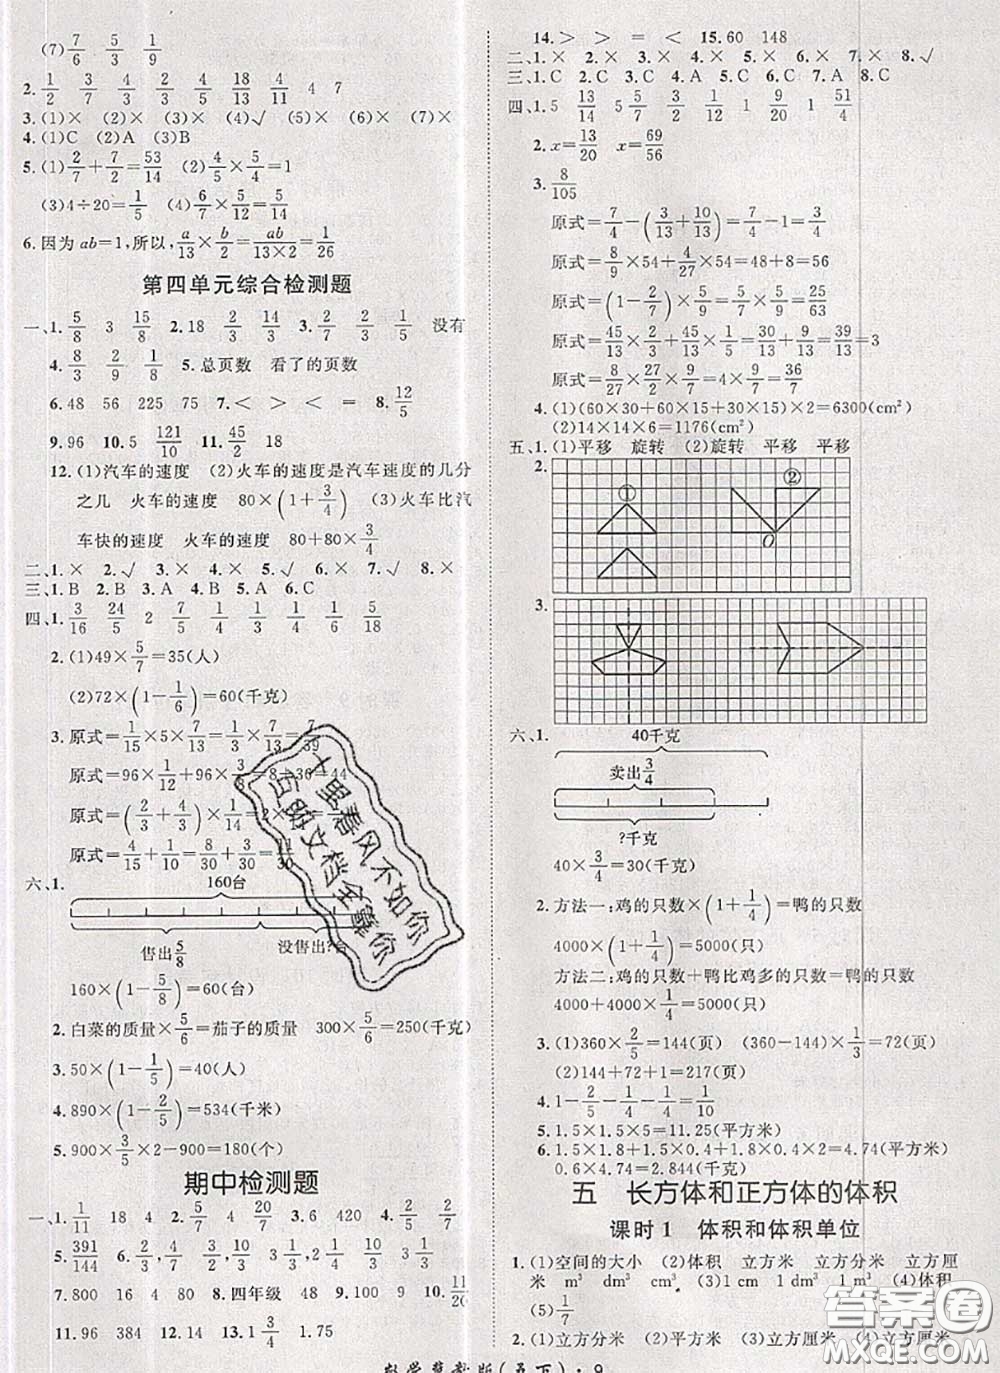 (7) 7/6 5/3 1/9
2. 1/2 3/4 4/3 2/3 4/5 18/13 4/11 4 7
3. (1)× (2)× (3)× (4)√ (5)× (6)× (7)×
4. (1)C (2)A (3)B
5. (1) 2/7 + 7/2 = 53/14 (2) 4/5 × 5/4 = 1
(3) 4÷20 = 1/5 (4) 6/7 × 5/6 = 5/7
6. 因为 ab=1, 所以, a/13 × b/2 = ab/(13×2) = 1/26
第四单元综合检测题
一、1. 5/8 3 15/8 2. 18 2/3 14/3 3. 2/7 2/3 1/5 没有
4. 8/3 2/9 1/8 5. 总页数 看了的页数
6. 48 56 225 75 7. < > < = 8. 12/5
9. 96 10. 5 121/10 11. 45/2 18
12. (1)汽车的速度 (2)火车的速度是汽车速度的几分
之几 火车的速度 80×(1+3/4) (3)火车比汽
车快的速度 火车的速度 80+80×3/4
二、1. × 2. √ 3. × 4. × 5. √ 6. × 7. √ 8. ×
三、1. B 2. B 3. A 4. B 5. A 6. C
四、1. 3/16 24/5 2 7/5 1/4 1/4 1/6 5/18
2. (1)49×5/7=35(人)
(2)72×(1-1/6)=60(千克)
3. 原式=1/15×5×7/13=1/3×7/13=7/39
原式=96×1/12+96×3/8=8+36=44
原式=(2/3+4/3)×1/14=2×
原式=4/15+1/10=8/30+3/30=
六、1.
160台
售出5/8 没售出?台
160×(1-5/8)=60(台)
2. 白菜的质量×5/6=茄子的质量 300×5/6=250(千克)
3. 50×(1-1/5)=40(人)
4. 890×(1-2/5)=534(千米)
5. 900×3/5×2-900=180(个)
期中检测题
一、1. 1/11 18 4 2. 5/7 4 20/7 3. 6 420 4. 3/4
5. 391/144 2/3 9/10 3 1/3 3 1/3 6. 2/3 3/2
7. 800 16 4 80 8. 四年级 48 9. 100 10.
11. 96 384 12. 14 13. 1 3/4 1.75
14. > > = < 15. 60 148
二、1. × 2. × 3. × 4. × 5. × 6. × 7. × 8. √
三、1. C 2. C 3. C 4. A 5. C 6. C 7. A 8. C
四、1. 5 13/14 5 5/7 2/7 1 9/10 1 51/4
2. x=13/20 x=69/56
3. 8/105
原式=7/4-(3/13+10/13)=7/4-1=3/4
原式=8/9×54+4/27×54=48+8=56
原式=(1-2/7)×9/8=5/7×9/8=45/56
原式=45/13×2/3+2/3×9/8=30/13+3/4
原式=8/27×2/7×9/4=36/7
4. (1)(60×30+60×15+30×15)×2=6300(cm²)
(2)14×14×6=1176(cm²)
五、1. (1)平移 旋转 (2)旋转 平移 平移
2.
① ②
O
3.
六、1.
40千克
卖出3/4
?千克
40×3/4=30(千克)
2. 方法一:鸡的只数×(1+1/4)=鸭的只数
4000×(1+1/4)=5000(只)
方法二:鸡的只数+鸭比鸡多的只数=鸭的只数
4000+4000×1/4=5000(只)
3. (1)360×2/5=144(页) (360-144)×1/3=72(页)
(2)144+72+1=217(页)
4. 1-2/5-1/4-1/4=1/10
5. 1.5×1.5×5=11.25(平方米)
6. 1.5×0.8+(1.5+0.8)×0.6×2... =4.74(平方米)
0.6×4.74=2.844(千克)
五 长方体和正方体的体积
课时1 体积和体积单位
1. (1)空间的大小 (2)体积 立方米 立方分米 立方厘
米 m³ dm³ cm³ (3)1立方米 (4)体积
(5)1/7
2. (1)立方分米 (2)平方米 (3)立方厘米
数学冀教版(五下)·9
十里春风不如你
百附文档全靠你
答案圈
MXQE.COM